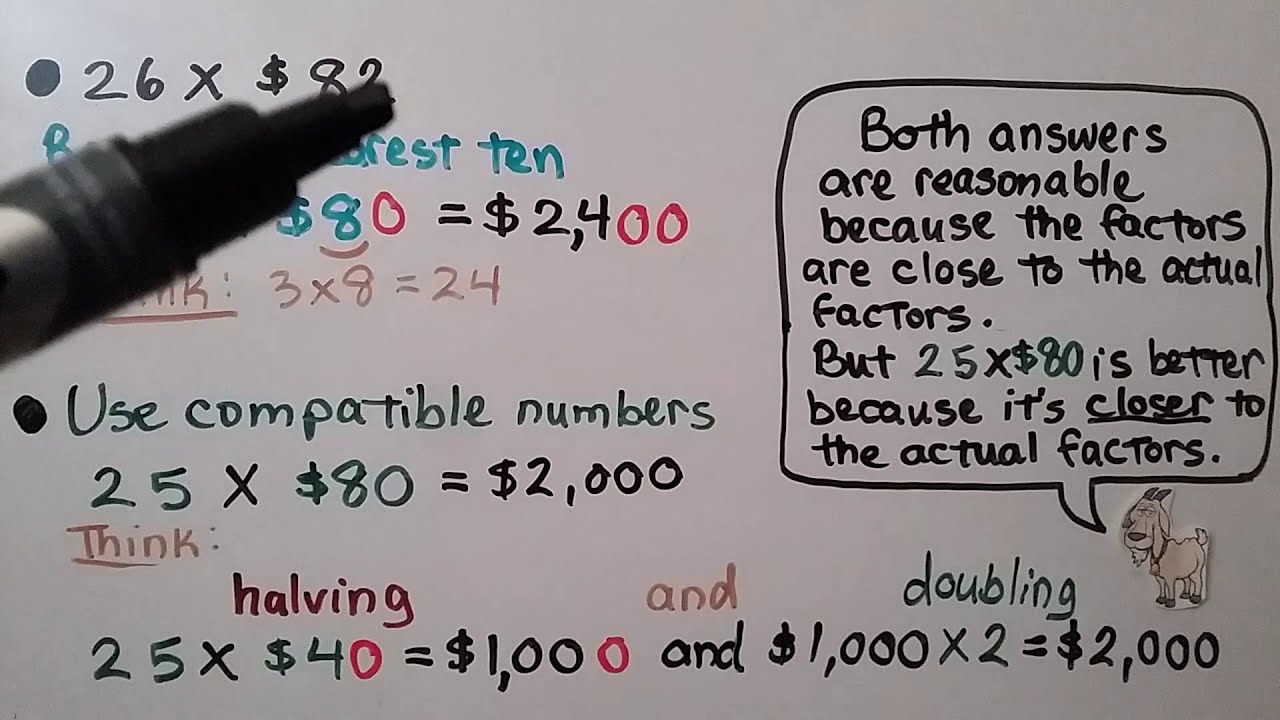 ● 26 x $ 82
ten
$80 = $2,400
: 3x8 = 24
● Use compatible numbers
25 x $80 = $2,000
Think:
halving and doubling
25x $40 = $1,000 and $1,000 x 2 = $2,000
Both answers
are reasonable
because the factors
are close to the actual
factors.
But 25x$80 is better
because it's closer to
the actual factors.